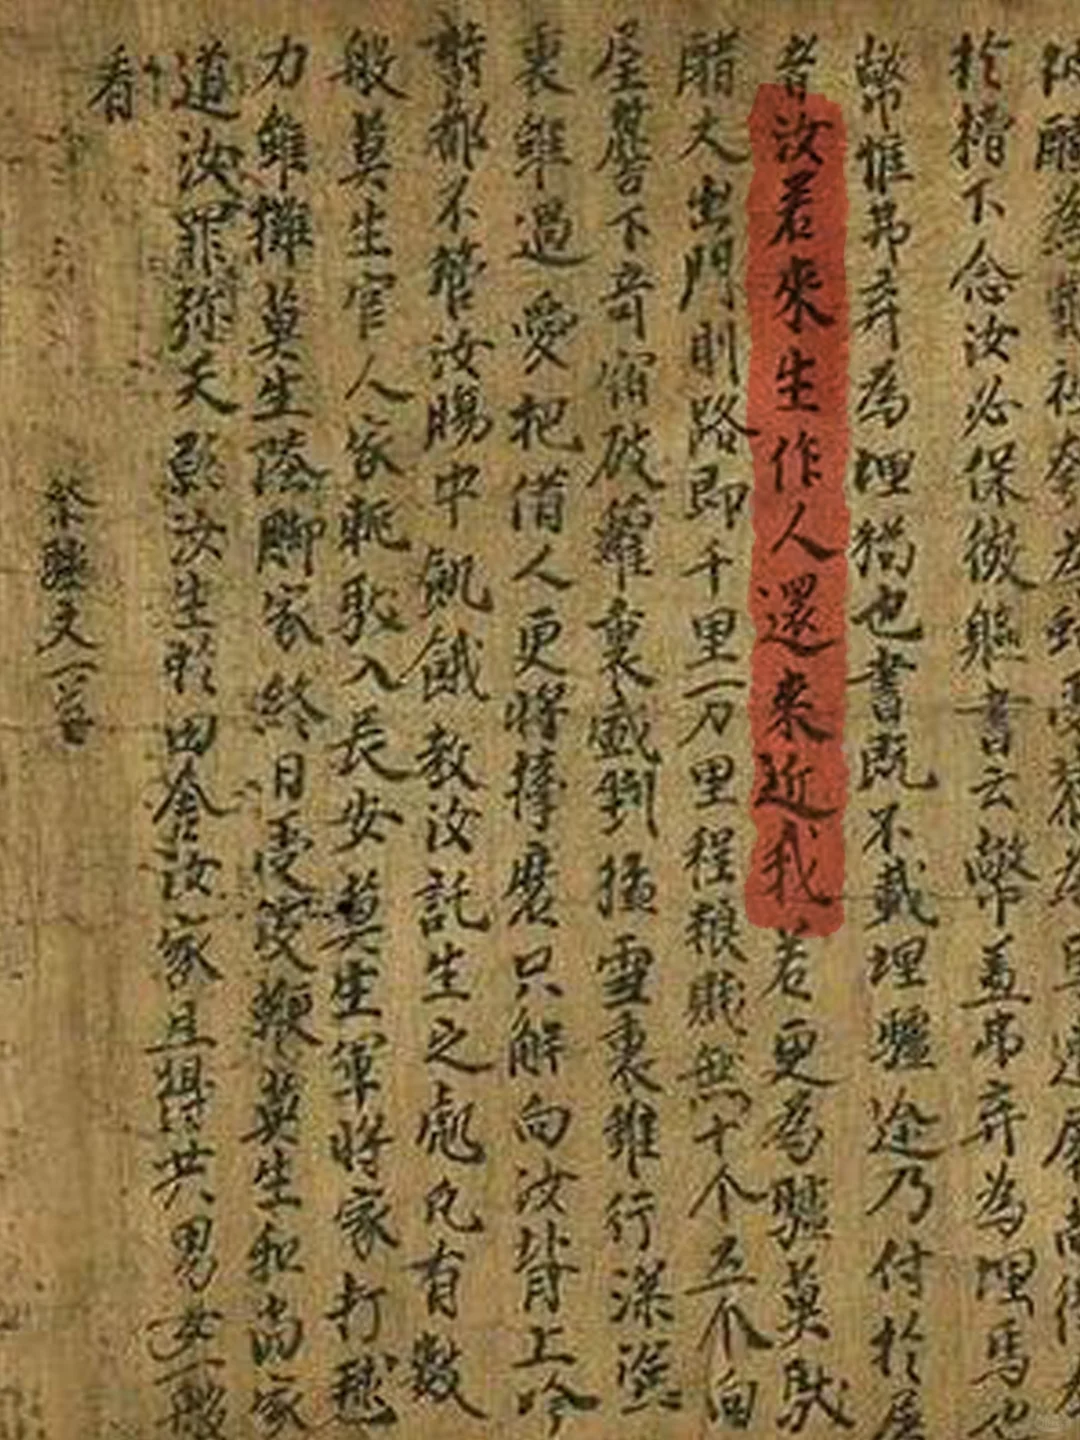 於槽下念汝必保微軀書云弊蓋弗弃為埋馬也
弊惟弗弃為埋狗也書既不載埋驢途乃付於屠
者汝若來生作人還來近我若更為驢莫馱
醋大出門則路即千里万里程粮賤無十个五个向
屋簷下寄宿破籬裏盛剉擔雪裏雖行深溪
裏雖過愛把借人更將捧磨只解向汝背上吟
詩都不管汝腸中飢餓教汝託生之處凡有數
般莫生官人家軛馱入長安莫生軍將家打毬
力雖攤莫生陸腳家終日受鞭莫生和尚家
道汝罪弥天願汝生於田舍汝家且得共男女一般
看
祭驢文一首